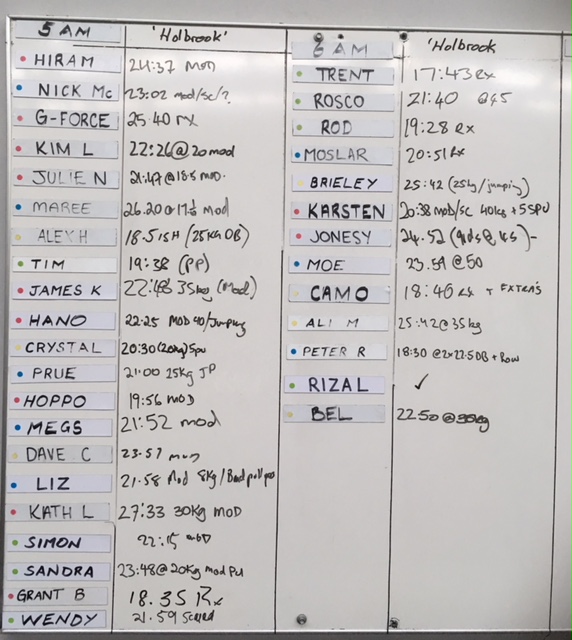 5 AM 'Holbrook'
HIRAM 24:37 mod
NICK Mc 23:02 mod/sc/?
G-FORCE 25.40 rx
KIM L 22:26@20mod
JULIE N @18.5 MOD.
MAREE 26.20 mod
ALEY H (25KG DB)
TIM 19:38 (PP)
JAMES K 22:48 35kg (Mod)
HANO 22:25 MOD 40/Jumping
CRYSTAL 20:30(20kg)5pu
PRUE 21:00 25kg JP
HOPPO 19:56 MOD
MEGS 21:52 mod
DAVE C 23.57
LIZ 21.58 Mod 8kg/
KATH L 27:33 30kg MOD
SIMON 22:15 MOD
SANDRA 23:48@20kg mod PU
GRANT B 18.35 Rx
WENDY 21.59 Scaled
6 AM 'Holbrook
TRENT 17:43 rx
ROSCO 21:40 @45
ROD 19:28 Rx
MOSLAR 20:51 Rx
BRIELEY 25:42 (25kg/jumping)
KARSTEN 20:38 MOD/SC 40kg + 5 SPU
JONESY 24.52
MOE 23.59 @50
CAMO 18:40 Rx + EXTRAS
ALI M 25:42@35kg
PETER R 18:30 @2x22.5DB + Row
RIZAL ✓
BEL 22:50 @